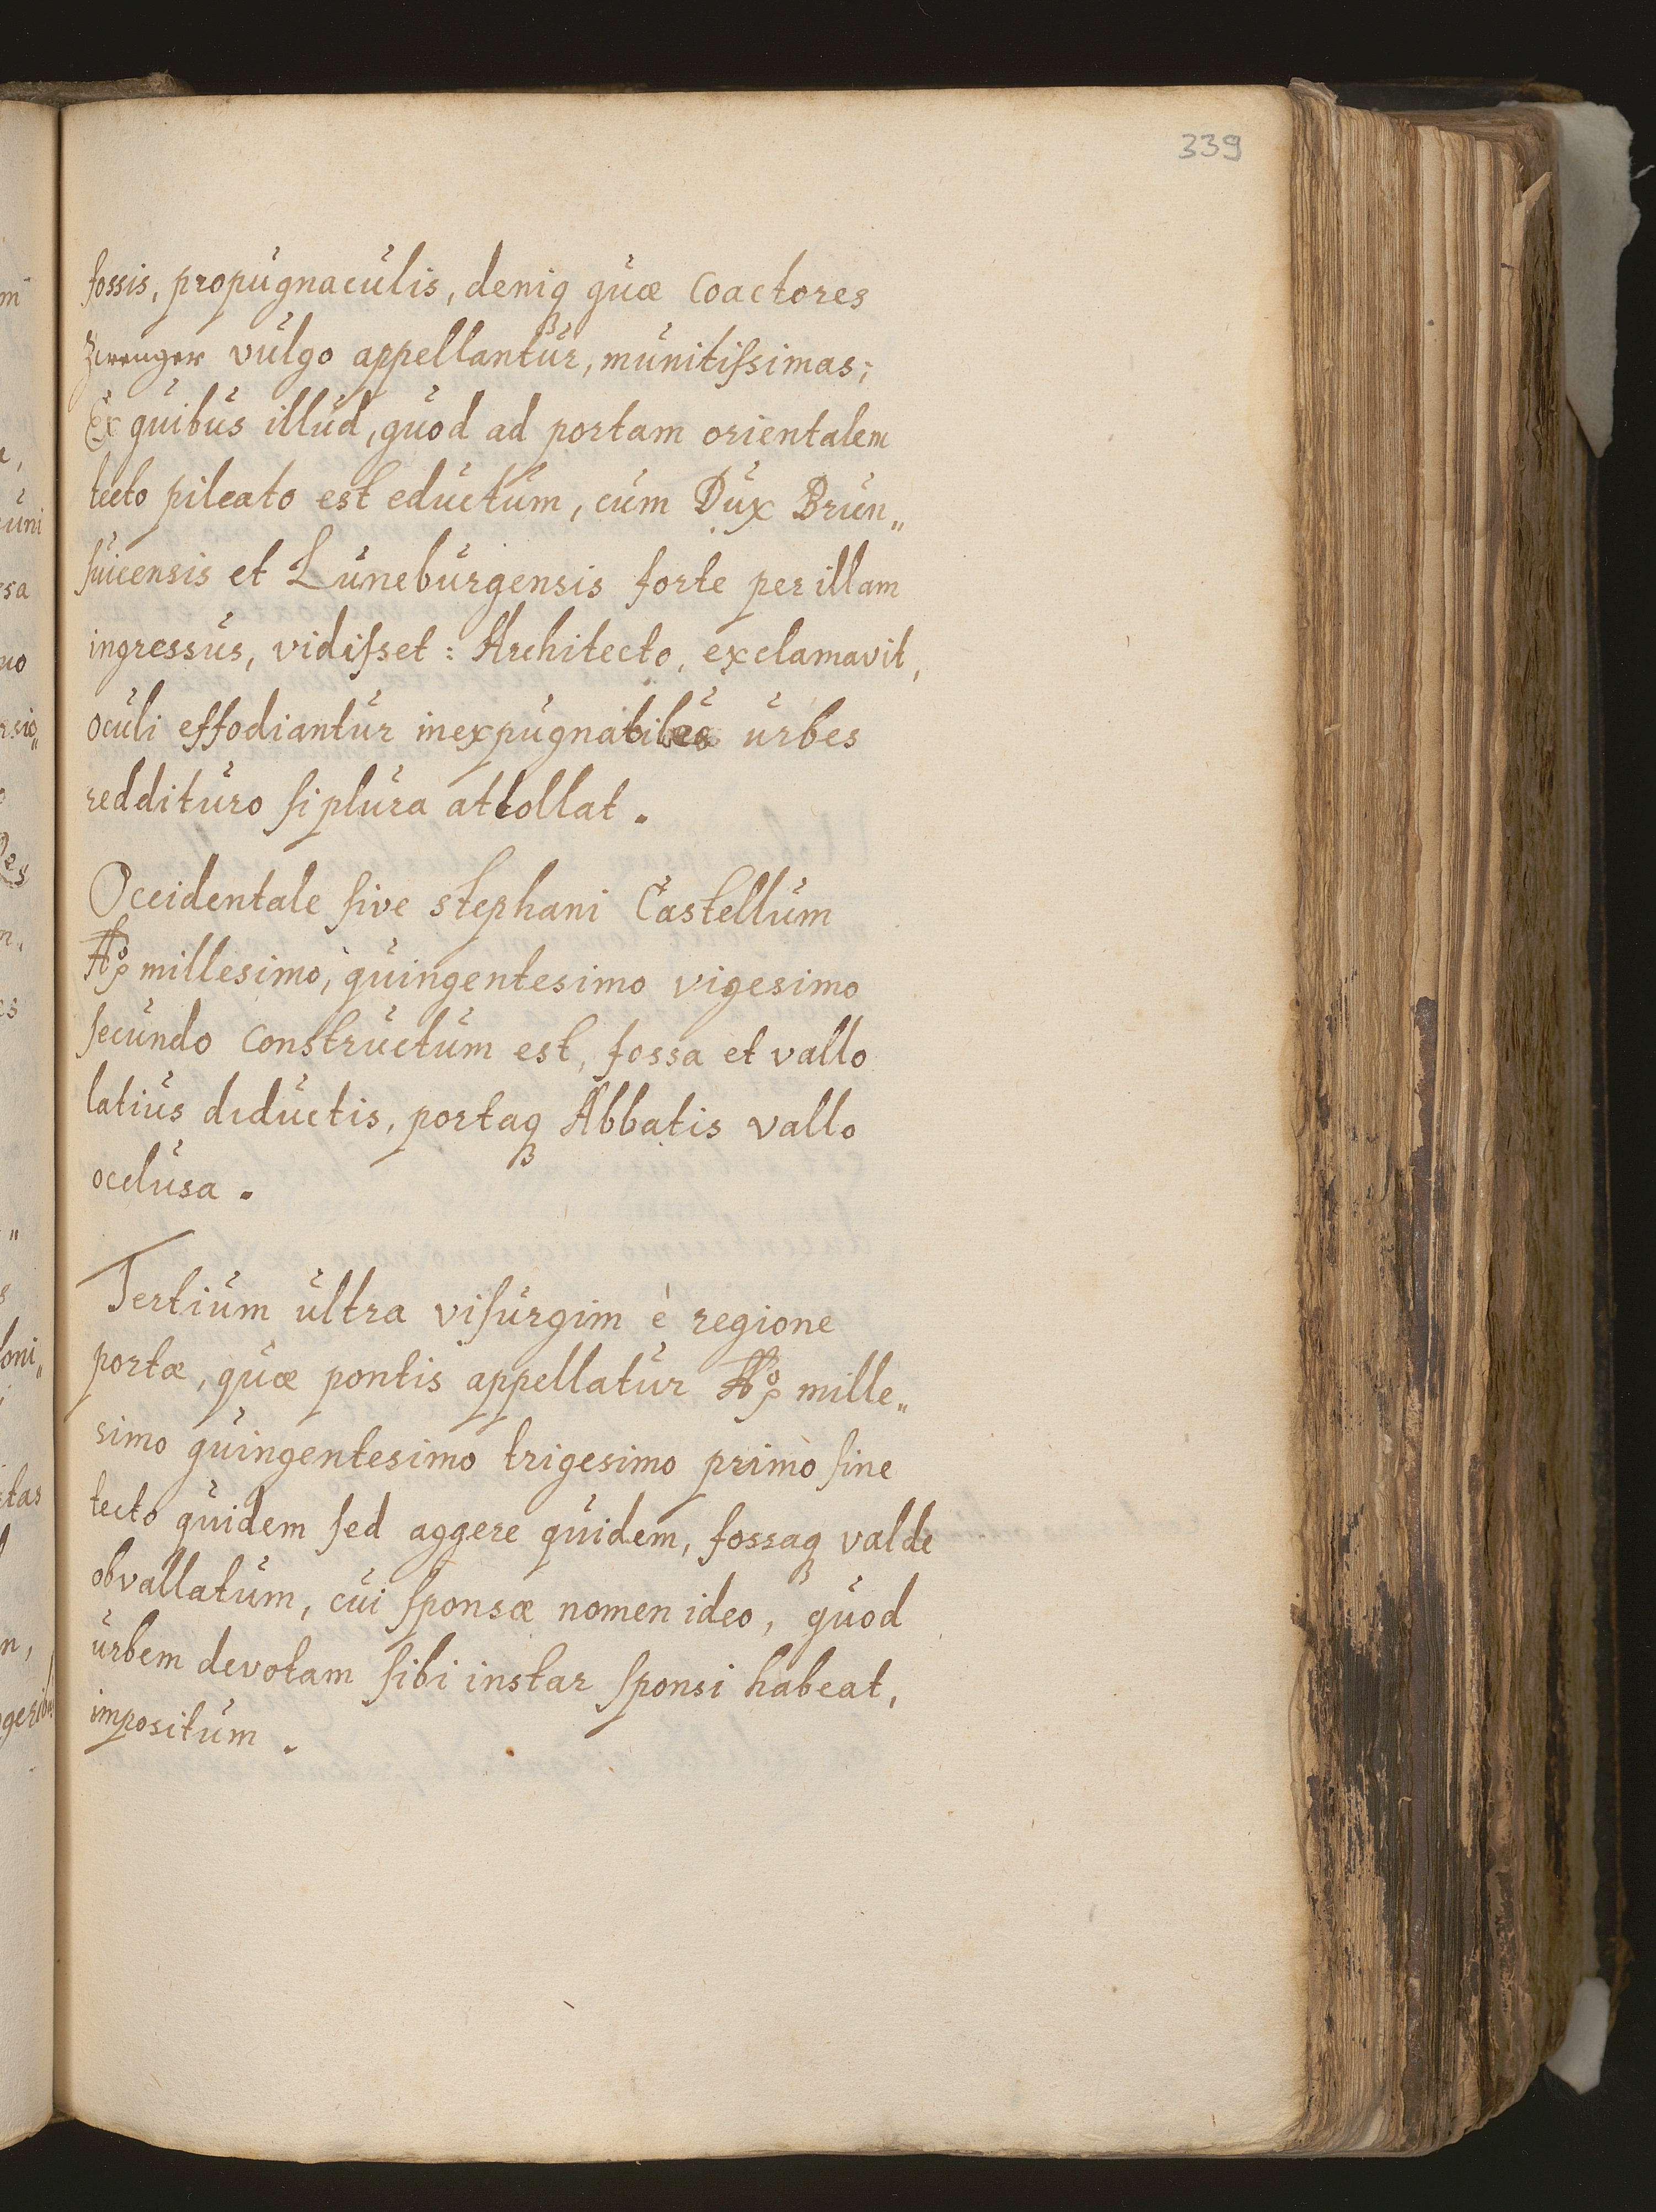 339
fossis, propugnaculis, deniqꝫ quæ coactores
Zwenger vulgo appellantur, munitiſsimas;
Ex quibus illud, quod ad portam orientalem
tecto pileato est eductum, cum Dux Brun„
ſuicensis et Luneburgensis forte per illam
ingressus, vidiſset: Architecto, exclamavit,
oculi effodiantur inexpugnabiles urbes
reddituro ſi plura attollat.
Occidentale ſive stephani Castellum
Aō millesimo, quingentesimo vigesimo
ſecundo constructum est, fossa et vallo
latius diductis, portaqꝫ Abbatis vallo
occlusa.
Tertium ultra viſurgim è regione
portæ, quæ pontis appellatur Aō mille„
simo quingentesimo trigesimo primò ſine
tecto quidem ſed aggere quidem, fossaqꝫ valde
obvallatum, cui ſponsæ nomen ideo, quod
urbem devotam ſibi instar ſponsi habeat,
impositum.